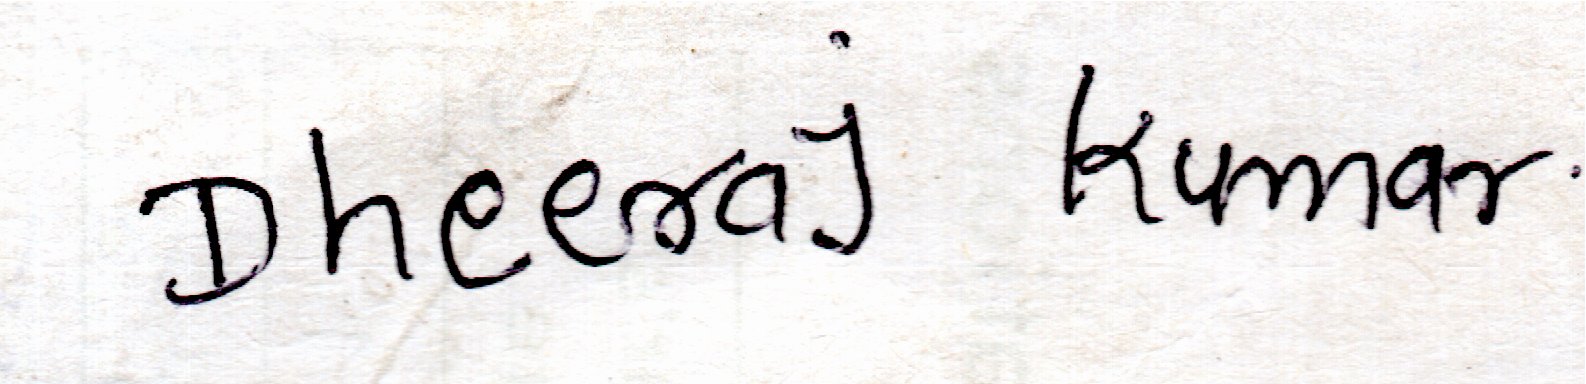 Dheeraj Kumar.